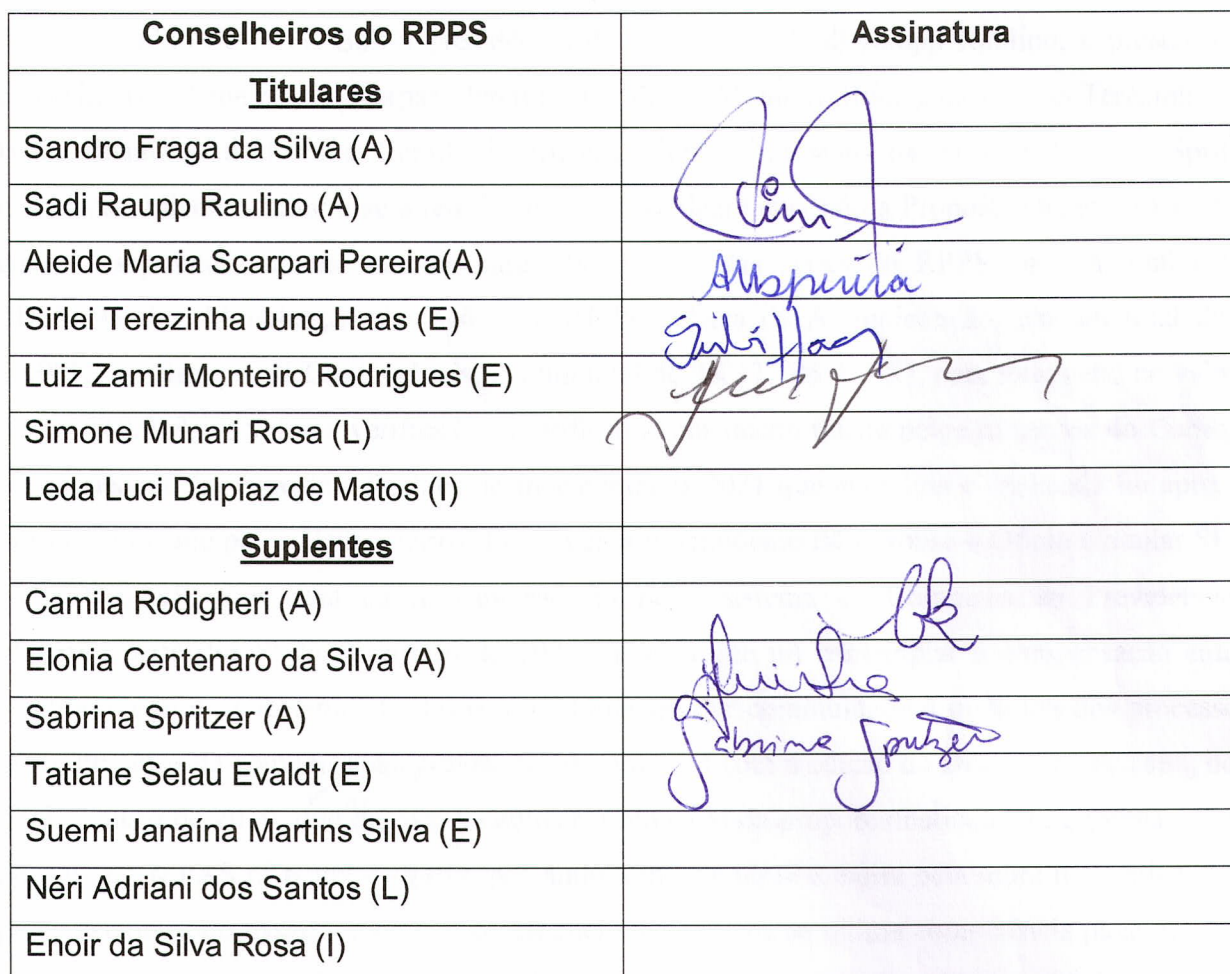 Conselheiros do RPPS Assinatura
Titulares
Sandro Fraga da Silva (A)
Sadi Raupp Raulino (A)
Aleide Maria Scarpari Pereira(A)
Sirlei Terezinha Jung Haas (E)
Luiz Zamir Monteiro Rodrigues (E)
Simone Munari Rosa (L)
Leda Luci Dalpiaz de Matos (I)
Suplentes
Camila Rodigheri (A)
Elonia Centenaro da Silva (A)
Sabrina Spritzer (A) Sabrina Spritzer
Tatiane Selau Evaldt (E)
Suemi Janaína Martins Silva (E)
Néri Adriani dos Santos (L)
Enoir da Silva Rosa (I)